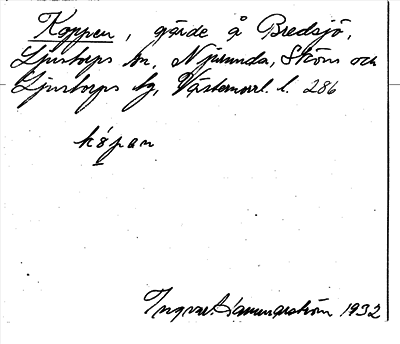 Koppen, gärde å Bredsjö,
Ljustorps sn, Njurunda, Sköns och
Ljustorps tg, Västernorrl. l. 286
kǻpan
Ingvar Hammarström 1932